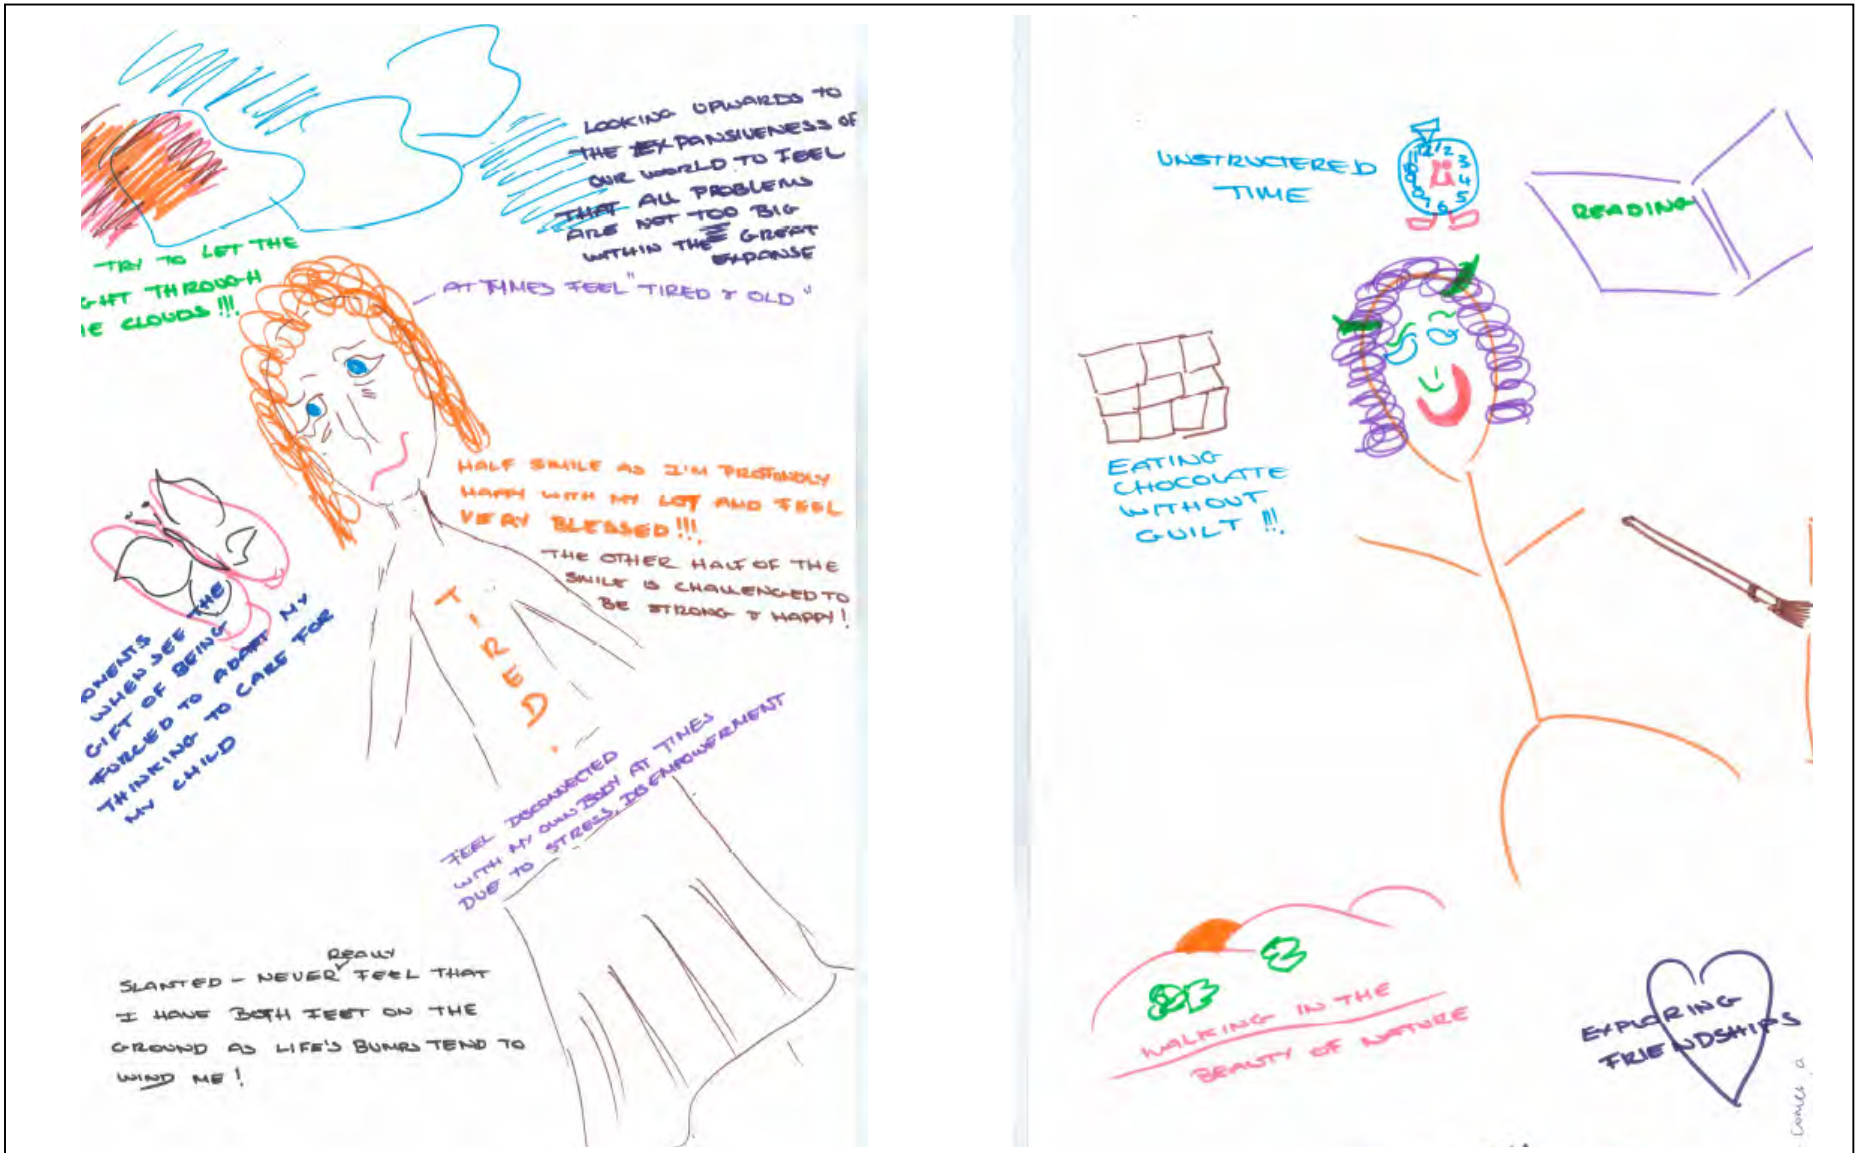 LOOKING UPWARDS TO
THE EXPANSIVENESS OF
OUR WORLD TO FEEL
THAT ALL PROBLEMS
ARE NOT TOO BIG
WITHIN THE GREAT
EXPANSE
TRY TO LET THE
GHT THROUGH
E CLOUDS!!!
AT TIMES FEEL "TIRED & OLD"
HALF SMILE AS I'M PROFONDLY
HAPPY WITH MY LOT AND FEEL
VERY BLESSED!!!
THE OTHER HALF OF THE
SMILE IS CHALLENGED TO
BE STRONG & HAPPY!
TIRED.
OMENTS
WHEN SEE THE
GIFT OF BEING
FORCED TO ADAPT MY
THINKING TO CARE FOR
MY CHILD
FEEL DISCONNECTED
WITH MY OWN BODY AT TIMES
DUE TO STRESS, DISEMPOWERMENT
SLANTED - NEVER REALLY FEEL THAT
I HAVE BOTH FEET ON THE
GROUND AS LIFE'S BUMPS TEND TO
WIND ME!
UNSTRUCTERED
TIME
12 1 2 3 4 5 6 7 8 9 10 11
READING
EATING
CHOCOLATE
WITHOUT
GUILT !!!
WALKING IN THE
BEAUTY OF NATURE
EXPLORING
FRIENDSHIPS
comes a